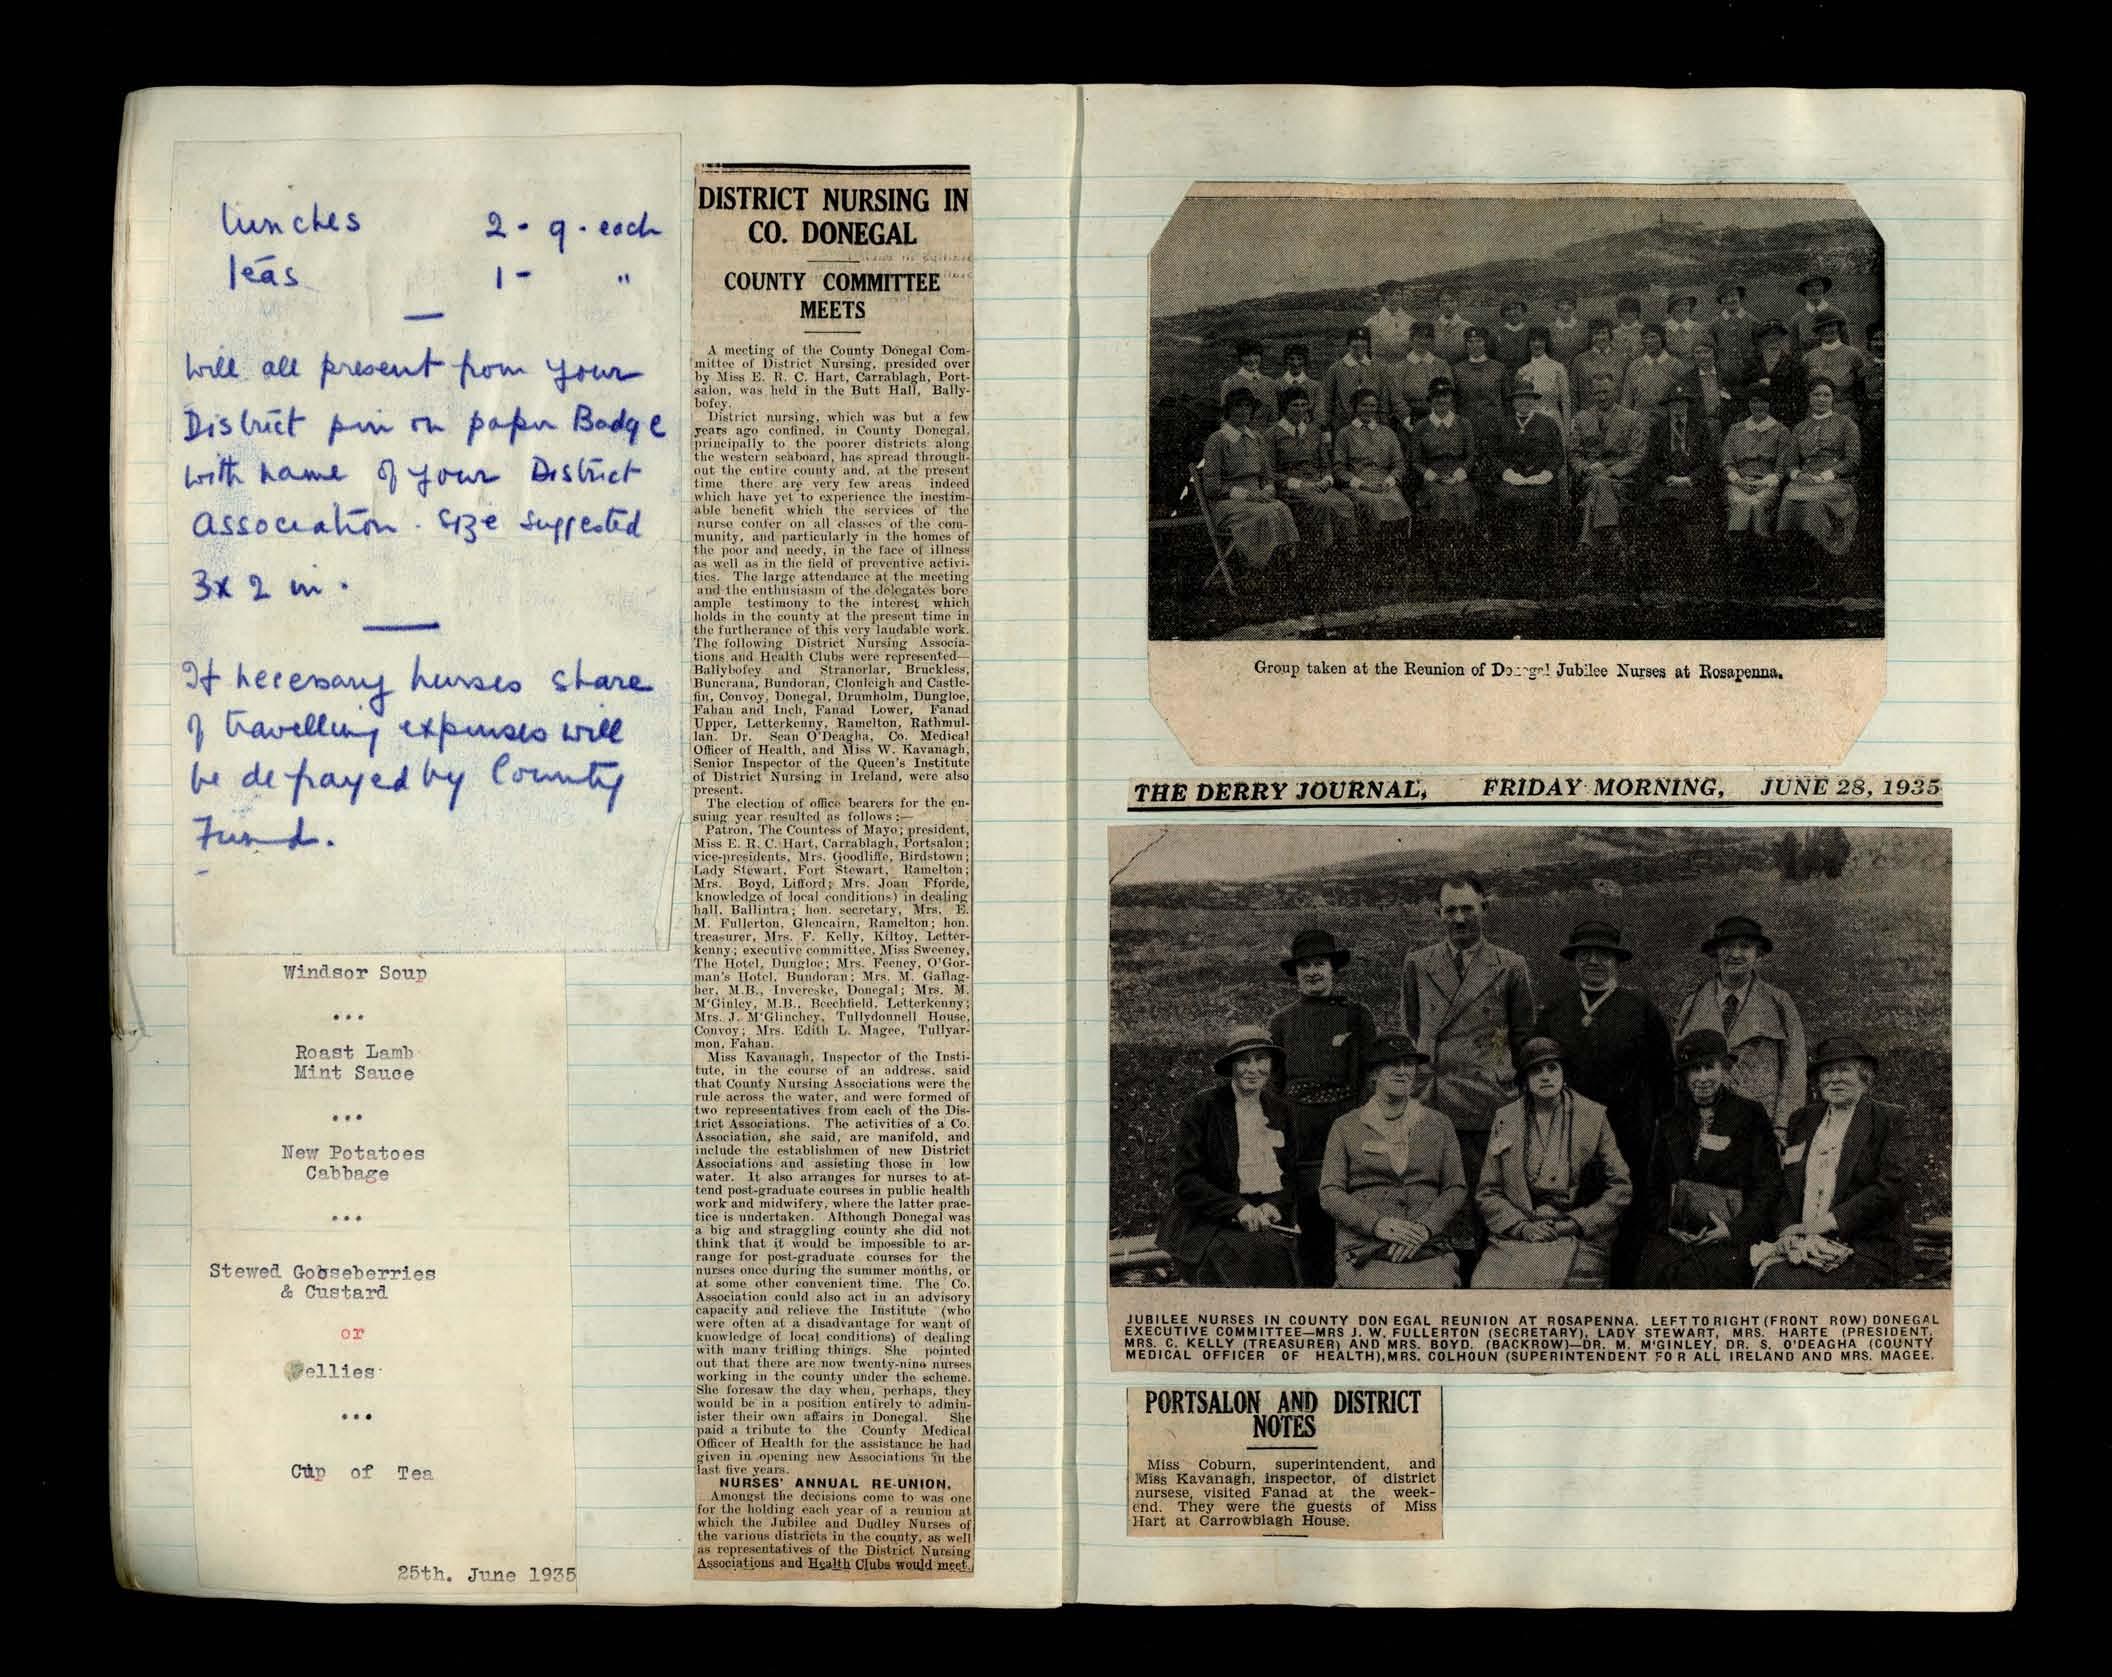 lunches 2 - 9 - each
Teas 1 - "
Will all present from your
District pin on paper Badge
with name of your District
Association. Size suggested
3 x 2 in.
If necessary nurses share
of travelling expenses will
be defrayed by County
Fund.
Windsor Soup
...
Roast Lamb
Mint Sauce
...
New Potatoes
Cabbage
...
Stewed Gooseberries
& Custard
or
Jellies
...
Cup of Tea
25th. June 1935
DISTRICT NURSING IN
CO. DONEGAL
COUNTY COMMITTEE
MEETS
A meeting of the County Donegal Com-
mittee of District Nursing, presided over
by Miss E. R. C. Hart, Carrablagh, Port-
salon, was held in the Butt Hall, Bally-
bofey.
District nursing, which was but a few
years ago confined, in County Donegal,
principally to the poorer districts along
the western seaboard, has spread through-
out the entire county and, at the present
time there are very few areas indeed
which have yet to experience the inestim-
able benefit which the services of the
nurse confer on all classes of the com-
munity, and particularly in the homes of
the poor and needy, in the face of illness
as well as in the field of preventive activi-
ties. The large attendance at the meeting
and the enthusiasm of the delegates bore
ample testimony to the interest which
holds in the county at the present time in
the furtherance of this very laudable work.
The following District Nursing Associa-
tions and Health Clubs were represented—
Ballybofey and Stranorlar, Bruckless,
Buncrana, Bundoran, Clonleigh and Castle-
fin, Convoy, Donegal, Drumholm, Dungloe,
Fahan and Inch, Fanad Lower, Fanad
Upper, Letterkenny, Ramelton, Rathmul-
lan. Dr. Sean O'Deagha, Co. Medical
Officer of Health, and Miss W. Kavanagh,
Senior Inspector of the Queen's Institute
of District Nursing in Ireland, were also
present.
The election of office bearers for the en-
suing year resulted as follows :—
Patron, The Countess of Mayo; president,
Miss E. R. C. Hart, Carrablagh, Portsalon;
vice-presidents, Mrs. Goodliffe, Birdstown;
Lady Stewart, Fort Stewart, Ramelton;
Mrs. Boyd, Lifford; Mrs. Joan Fforde,
knowledge of local conditions) in dealing
hall, Ballintra; hon. secretary, Mrs. E.
M. Fullerton, Glencairn, Ramelton; hon.
treasurer, Mrs. F. Kelly, Kiltoy, Letter-
kenny; executive committee, Miss Sweeney,
The Hotel, Dungloe; Mrs. Feeney, O'Gor-
man's Hotel, Bundoran; Mrs. M. Gallag-
her, M.B., Invereske, Donegal; Mrs. M.
M'Ginley, M.B., Beechfield, Letterkenny;
Mrs. J. M'Glinchey, Tullydonnell House,
Convoy; Mrs. Edith L. Magee, Tullyar-
mon, Fahan.
Miss Kavanagh, Inspector of the Insti-
tute, in the course of an address, said
that County Nursing Associations were the
rule across the water, and were formed of
two representatives from each of the Dis-
trict Associations. The activities of a Co.
Association, she said, are manifold, and
include the establishmen of new District
Associations and assisting those in low
water. It also arranges for nurses to at-
tend post-graduate courses in public health
work and midwifery, where the latter prac-
tice is undertaken. Although Donegal was
a big and straggling county she did not
think that it would be impossible to ar-
range for post-graduate courses for the
nurses once during the summer months, or
at some other convenient time. The Co.
Association could also act in an advisory
capacity and relieve the Institute (who
were often at a disadvantage for want of
knowledge of local conditions) of dealing
with many trifling things. She pointed
out that there are now twenty-nine nurses
working in the county under the scheme.
She foresaw the day when, perhaps, they
would be in a position entirely to admin-
ister their own affairs in Donegal. She
paid a tribute to the County Medical
Officer of Health for the assistance he had
given in opening new Associations in the
last five years.
NURSES' ANNUAL RE-UNION.
Amongst the decisions come to was one
for the holding each year of a reunion at
which the Jubilee and Dudley Nurses of
the various districts in the county, as well
as representatives of the District Nursing
Associations and Health Clubs would meet.
Group taken at the Reunion of Donegal Jubilee Nurses at Rosapenna.
THE DERRY JOURNAL, FRIDAY MORNING, JUNE 28, 1935
JUBILEE NURSES IN COUNTY DONEGAL REUNION AT ROSAPENNA. LEFT TO RIGHT (FRONT ROW) DONEGAL
EXECUTIVE COMMITTEE—MRS J. W. FULLERTON (SECRETARY), LADY STEWART, MRS. HARTE (PRESIDENT,
MRS. C. KELLY (TREASURER) AND MRS. BOYD. (BACKROW)—DR. M. M'GINLEY, DR. S. O'DEAGHA (COUNTY
MEDICAL OFFICER OF HEALTH), MRS. COLHOUN (SUPERINTENDENT FOR ALL IRELAND AND MRS. MAGEE.
PORTSALON AND DISTRICT
NOTES
Miss Coburn, superintendent, and
Miss Kavanagh, inspector, of district
nursese, visited Fanad at the week-
end. They were the guests of Miss
Hart at Carrowblagh House.